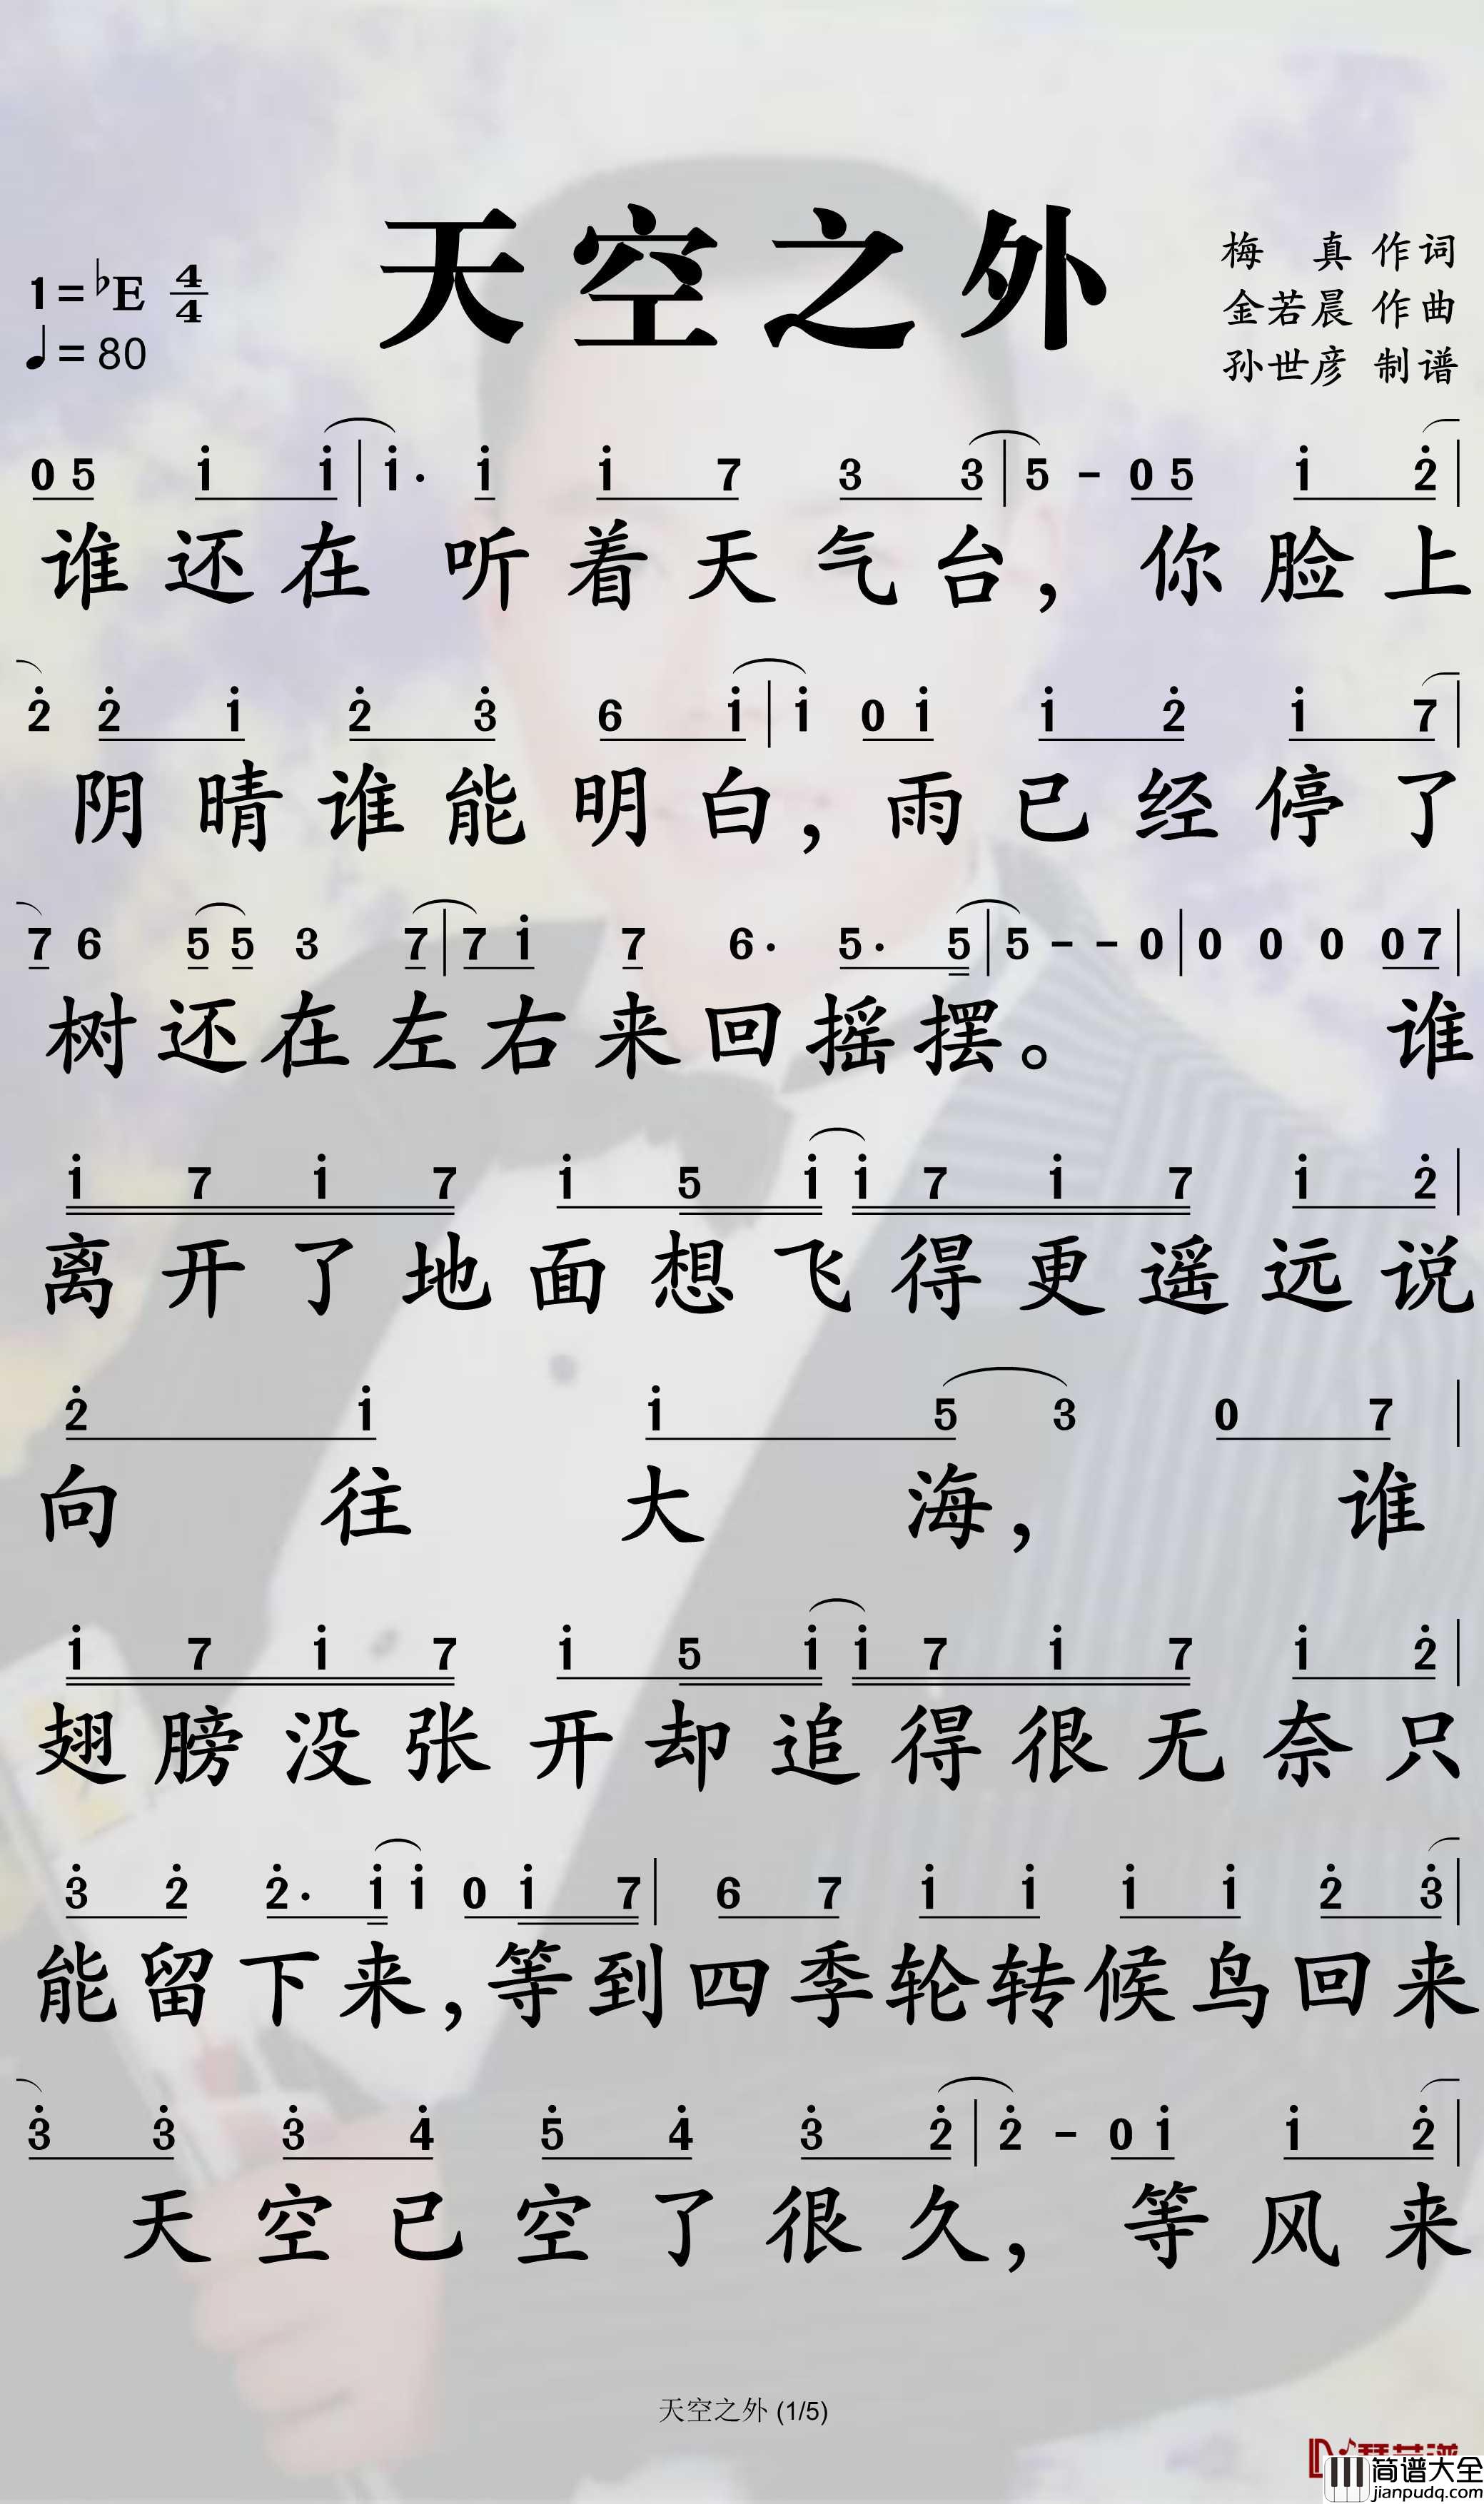 天空之外
1=♭E 4/4
♩=80
梅 真 作词
金若晨 作曲
孙世彦 制谱
0 5 i i | i· i i 7 3 3 | 5 - 0 5 i 2̇ |
谁还在 听着天气台，你脸上
2̇ 2̇ i 2̇ 3̇ 6 i | i 0 i i 2̇ i 7 |
阴晴谁能明白，雨已经停了
7 6 5 5 3 7 | 7 i 7 6· 5· 5 | 5 - - 0 | 0 0 0 0 7 |
树还在左右来回摇摆。 谁
i 7 i 7 i 5 i i 7 i 7 i 2̇ |
离开了地面想飞得更遥远说
2̇ i i 5 3 0 7 |
向往大海， 谁
i 7 i 7 i 5 i i 7 i 7 i 2̇ |
翅膀没张开却追得很无奈只
3̇ 2̇ 2̇· i i 0 i 7 | 6 7 i i i i 2̇ 3̇ |
能留下来，等到四季轮转候鸟回来
3̇ 3̇ 3̇ 4̇ 5̇ 4̇ 3̇ 2̇ | 2̇ - 0 i i 2̇ |
天空已空了很久，等风来
天空之外 (1/5)
简谱大全
jianpudq.com